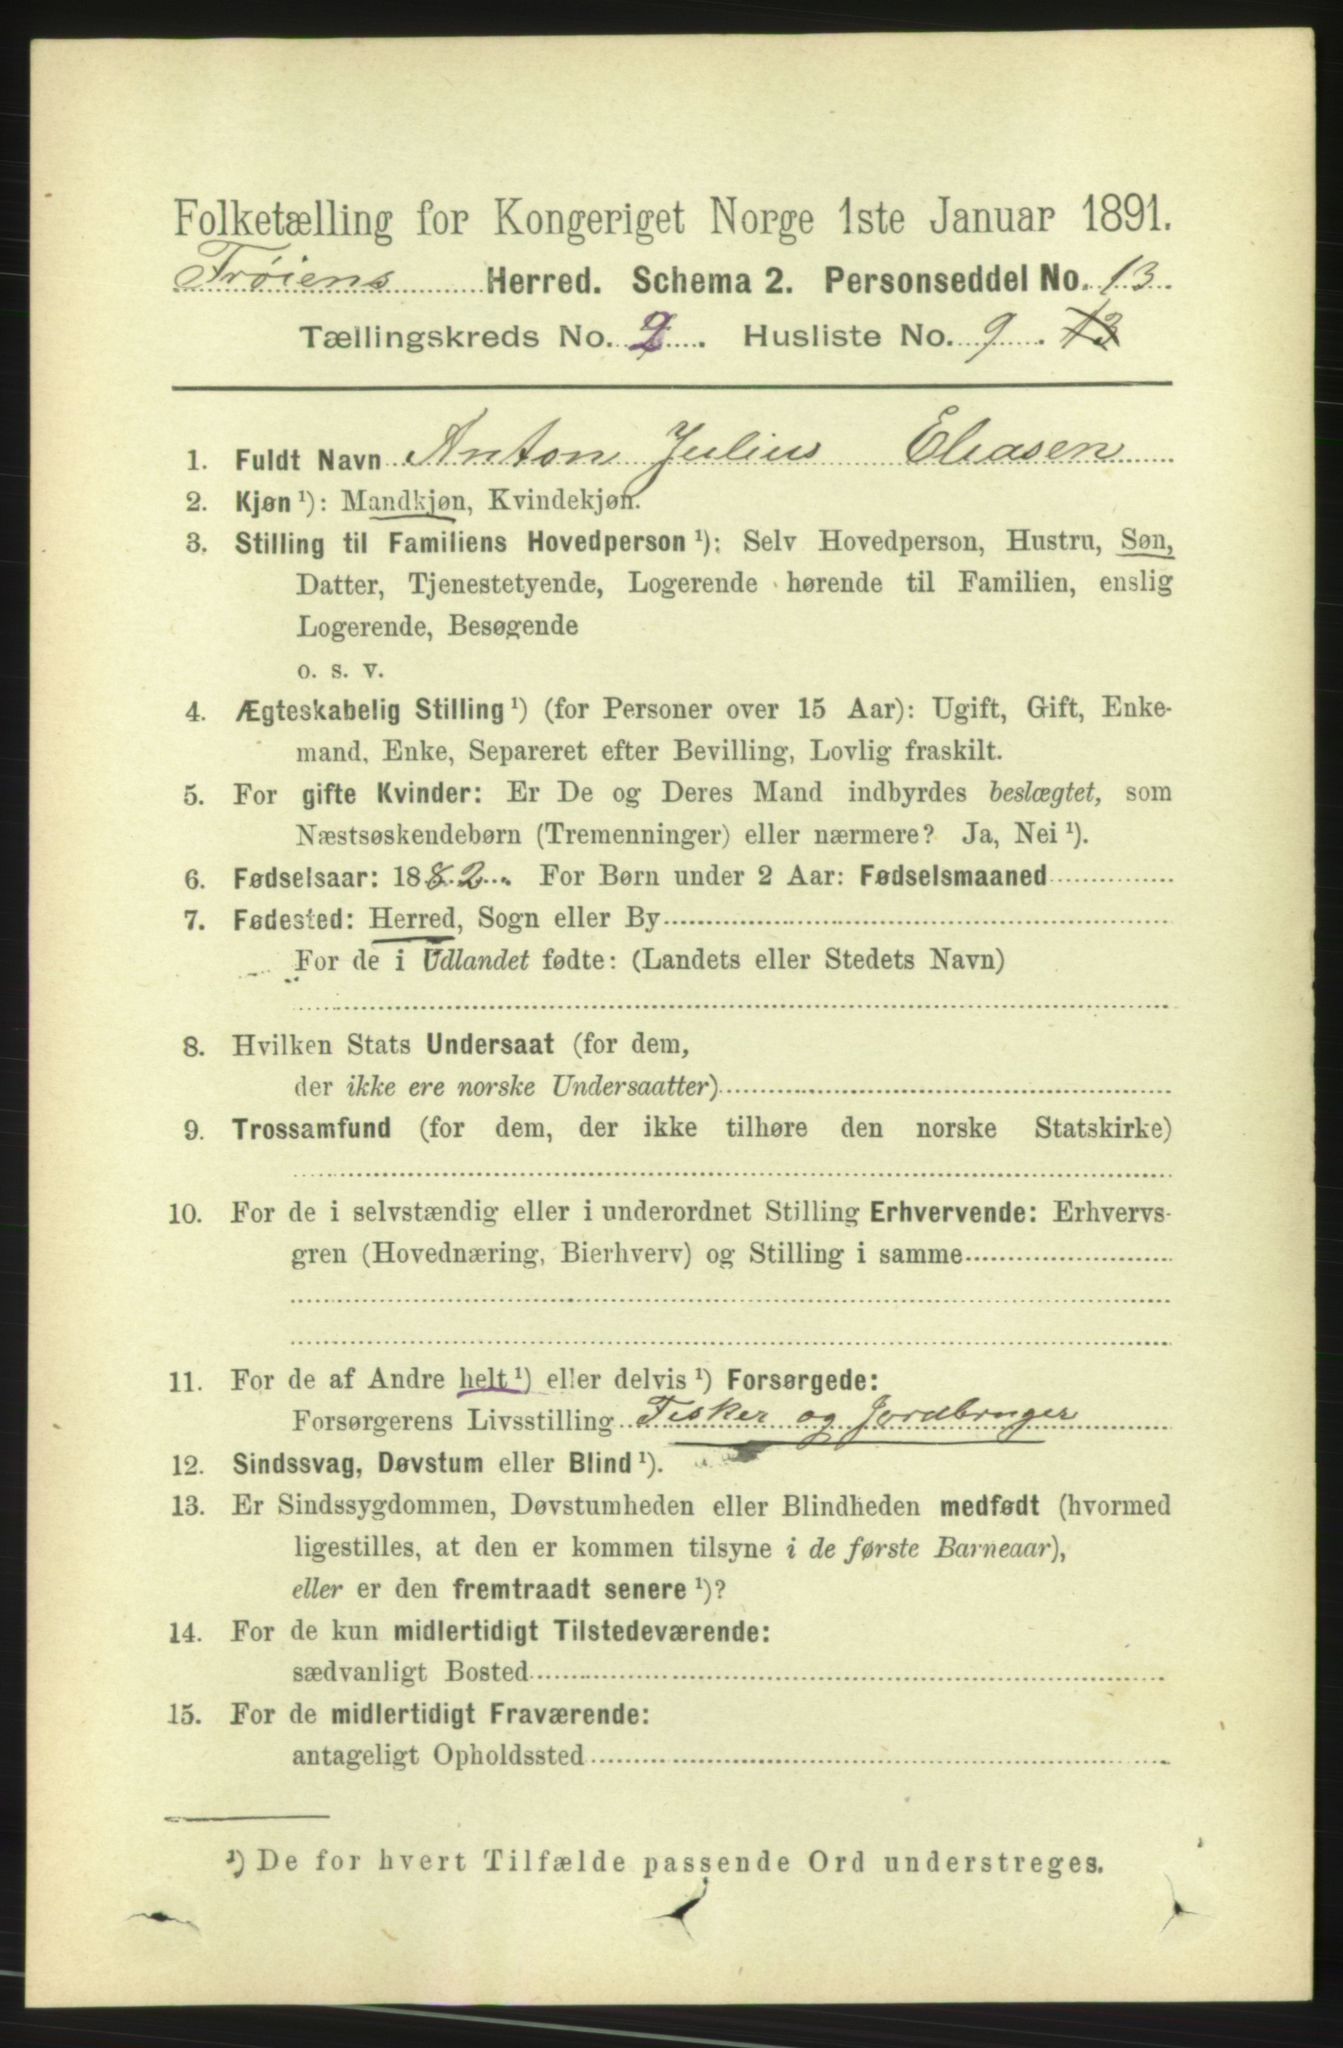 Folketælling for Kongeriget Norge 1ste Januar 1891.
Frøiens Herred. Schema 2. Personseddel No. 13
Tællingskreds No. 2. Husliste No. 9. 13
1. Fuldt Navn Anton Julius Eliasen
2. Kjøn ¹): Mandkjøn, Kvindekjøn.
3. Stilling til Familiens Hovedperson ¹): Selv Hovedperson, Hustru, Søn,
Datter, Tjenestetyende, Logerende hørende til Familien, enslig
Logerende, Besøgende
o. s. v.
4. Ægteskabelig Stilling ¹) (for Personer over 15 Aar): Ugift, Gift, Enke-
mand, Enke, Separeret efter Bevilling, Lovlig fraskilt.
5. For gifte Kvinder: Er De og Deres Mand indbyrdes beslægtet, som
Næstsøskendebørn (Tremenninger) eller nærmere? Ja, Nei ¹).
6. Fødselsaar: 1882. For Børn under 2 Aar: Fødselsmaaned
7. Fødested: Herred, Sogn eller By
For de i Udlandet fødte: (Landets eller Stedets Navn)
8. Hvilken Stats Undersaat (for dem,
der ikke ere norske Undersaatter)
9. Trossamfund (for dem, der ikke tilhøre den norske Statskirke)
10. For de i selvstændig eller i underordnet Stilling Erhvervende: Erhvervs-
gren (Hovednæring, Bierhverv) og Stilling i samme
11. For de af Andre helt ¹) eller delvis ¹) Forsørgede:
Forsørgerens Livsstilling Fisker og Jordbruger
12. Sindssvag, Døvstum eller Blind ¹).
13. Er Sindssygdommen, Døvstumheden eller Blindheden medfødt (hvormed
ligestilles, at den er kommen tilsyne i de første Barneaar),
eller er den fremtraadt senere ¹)?
14. For de kun midlertidigt Tilstedeværende:
sædvanligt Bosted
15. For de midlertidigt Fraværende:
antageligt Opholdssted
¹) De for hvert Tilfælde passende Ord understreges.